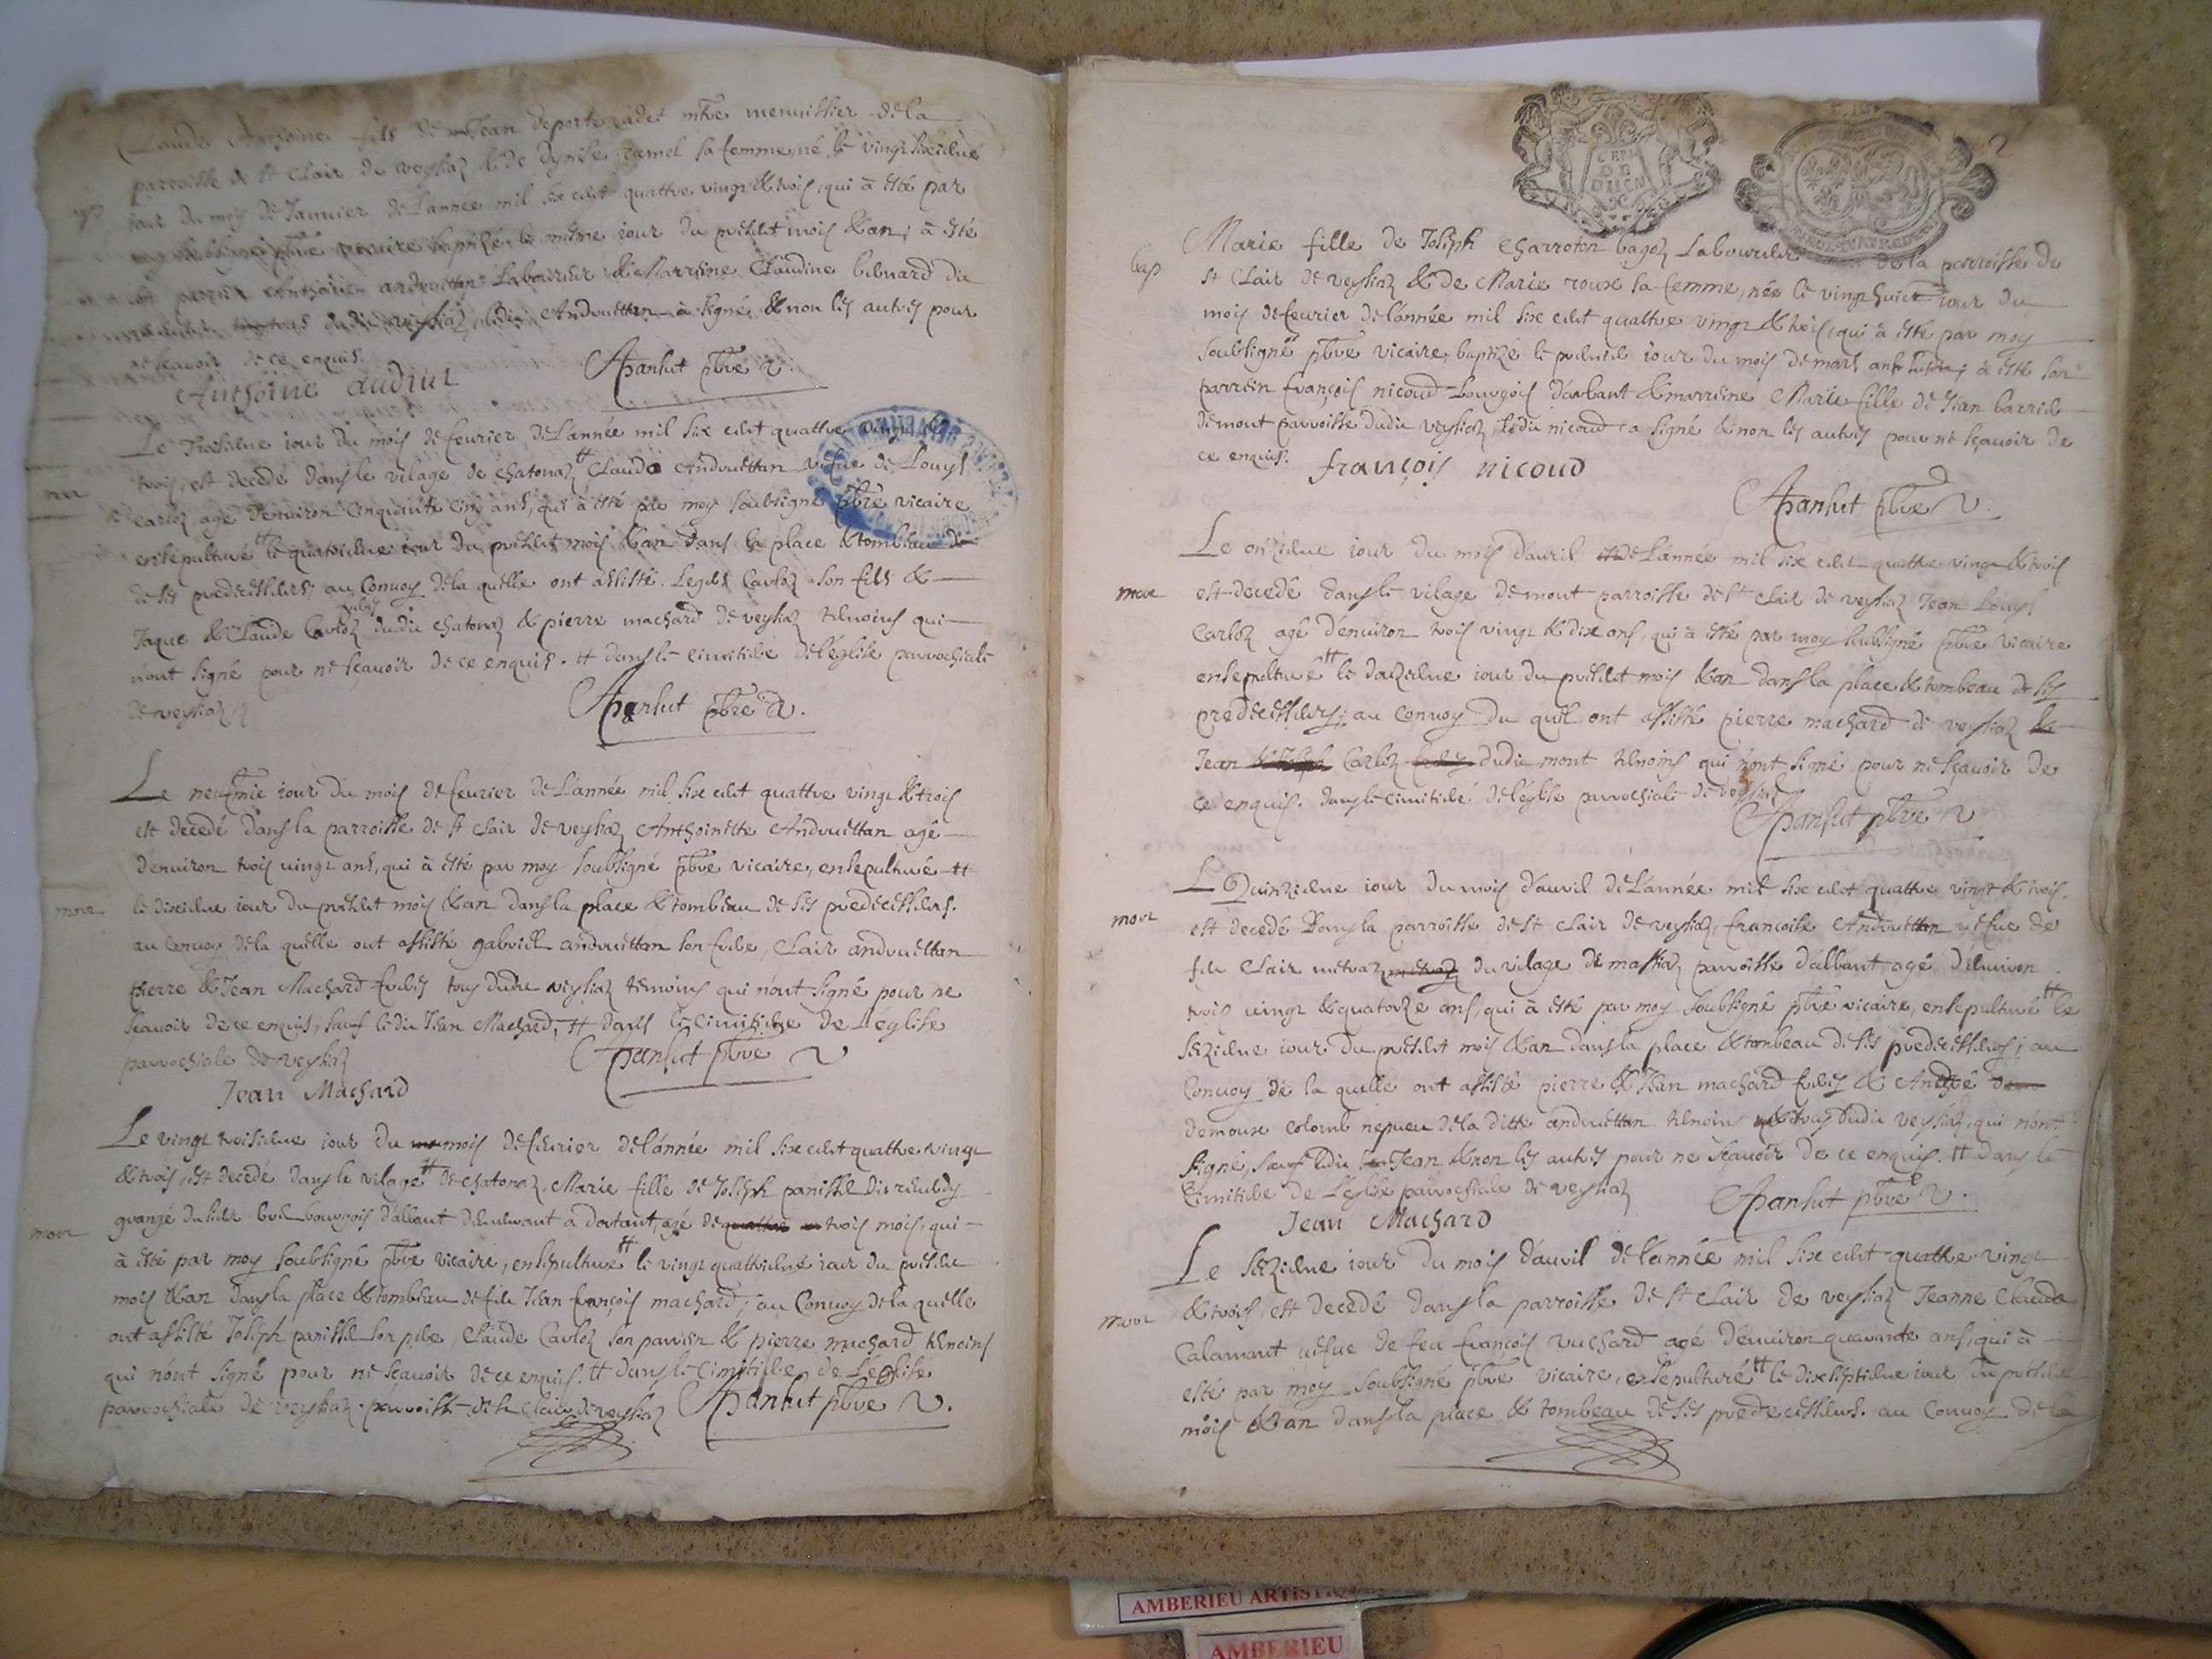 Claude Anthoine fils de Jean deporte cadet mtre menuissier de la
parroisse de st Clair de veyssiaz & de Dynise camel sa femme, né le vingt
iour du mois de Januier de l'annee mil six cent quattre vingt & trois, qui à esté par
moy pbre vicaire baptizé le même iour du present mois & an, à esté
Anthoine androuettan Laboureur & Marreine Claudine
dudit veyssiaz, ledit Androuettan à signé & non les autres pour
ne scauoir de ce enquis.
Anthoine
pbre v.
Le Troisieme iour du mois de feurier de L'année mil six cent quattre vingt &
trois, est decedé dans le vilage de chatonaz # Claude Androuettan vefue de Louys
Carloz agé d'enuiron cinquante cinq ans, qui à esté par moy soubsigné pbre vicaire
ensepulturé # le quatrieme iour du present mois & an dans la place & tombeau de
de ses predecesseurs; au Conuoy de la quelle ont assisté Carloz son fils &
Jaque & Claude Carloz dudit chatonaz & pierre machard de veyssiaz temoins qui
n'ont signé pour ne sçauoir de ce enquis. # dans le cimitiere de l'église parrochiale
de veyssiaz
pbre v.
Le neufme iour du mois de feurier de L'année mil six cent quattre vingt & trois
est decedé dans la parroisse de st Clair de veyssiaz Anthoinette Androuettan agé
d'enuiron trois vingt ans, qui à esté par moy soubsigné pbre vicaire, ensepulturé #
mort le dixieme iour du present mois & an dans la place & tombeau de ses predecesseurs.
au Conuoy de la quelle ont assisté gabriel androuettan son frere, Clair androuettan
pierre & Jean Machard freres tous dudit veyssiaz temoins qui n'ont signé pour ne
scauoir de ce enquis, sauf ledit Jean Machard, # dans le Cimitiere de L'église
parrochiale de veyssiaz
pbre v
Jean Machard
Le vingt troisieme iour du mois de feurier de l'année mil six cent quattre vingt
& trois, est decedé dans le vilage # de chatonaz, Marie fille de Joseph
grangé du sieur bourgois d'albant agé de trois mois, qui
mort à esté par moy soubsigné pbre vicaire, ensepulturé # le vingt quattrieme iour du present
mois & an dans la place & tombeau de feu Jean françois machard; au Conuoy de la quelle
ont assisté Joseph son pere, Claude Carloz son parrein & pierre machard temoins
qui n'ont signé pour ne sçauoir de ce enquis. # dans le Cimitiere de L'église
parrochiale de veyssiaz. parroisse de st Clair de veyssiaz pbre v.
Marie fille de Joseph Charroton Laboureur de la parroisse de
bap st Clair de veyssiaz & de Marie roux sa femme, née le vingt huict iour du
mois de feurier de l'année mil six cent quattre vingt & trois, qui à esté par moy
soubsigné pbre vicaire, baptizé le premier iour du mois de mars an à esté son
parrein françois nicoud bourgois d'arbant & marreine Marie fille de Jean
de mont parroisse dudit veyssiaz, ledit nicoud a signé & non les autres pour ne sçauoir de
ce enquis.
françois nicoud
pbre v.
Le onzieme iour du mois d'auril de L'année mil six cent quattre vingt & trois
mort est decedé dans le vilage de mont parroisse de st Clair de veyssiaz Jean Louys
Carloz agé d'enuiron trois vingt & dix ans, qui à esté par moy soubsigné pbre vicaire
ensepulturé # le douzieme iour du present mois & an dans la place & tombeau de ses
predecesseurs; au Conuoy du quel ont assisté pierre machard de veyssiaz
Jean Carloz dudit mont temoins qui n'ont signé pour ne sçauoir de
ce enquis. dans le cimitiere de l'église parrochiale de veyssiaz
pbre v
Le Quinzieme iour du mois d'auril de L'année mil six cent quattre vingt & trois.
mort est decedé Dans la parroisse de st Clair de veyssiaz, françoise Androuettan vefue de
feu Clair metraz du vilage de massiaz parroisse d'albant, agé d'enuiron
trois vingt & quatorze ans, qui à esté par moy soubsigné pbre vicaire, ensepulturé # le
sezieme iour du present mois & an dans la place & tombeau de ses predecesseurs; au
Conuoy de la quelle ont assisté pierre & Jean machard freres & André
demoux colomb nepueu de la ditte androuettan temoins & tous dudit veyssiaz, qui n'ont
signé, sauf ledit Jean, & non les autres pour ne scauoir de ce enquis. # dans le
Cimitiere de L'église parrochiale de veyssiaz
pbre v.
Jean Machard
Le sezieme iour du mois d'auril de l'année mil six cent quattre vingt
mort & trois, est decedé dans la parroisse de st Clair de veyssiaz Jeanne Claude
Calamant vefue de feu françois vuchard agé d'enuiron quarante ans, qui à
esté par moy soubsigné pbre vicaire, ensepulturé # le dix septieme iour du present
mois & an dans la place & tombeau de ses predecesseurs. au Conuoy de la
AMBERIEU ARTISTIQUE
AMBERIEU